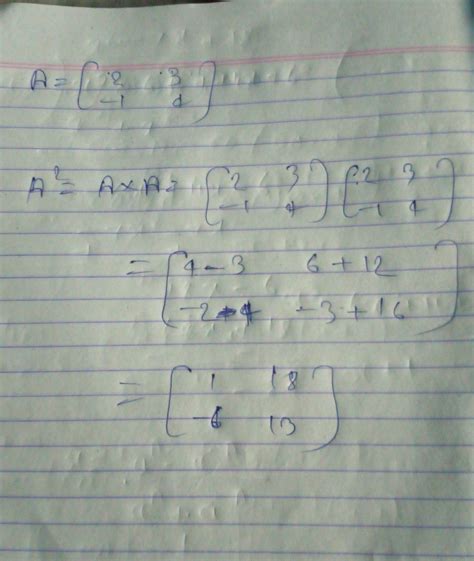 A = [ 2 3
-1 4 ]
A² = A × A = [ 2 3 [ 2 3
-1 4 ] -1 4 ]
= [ 4 - 3 6 + 12
-2 - 4 -3 + 16 ]
= [ 1 18
-6 13 ]